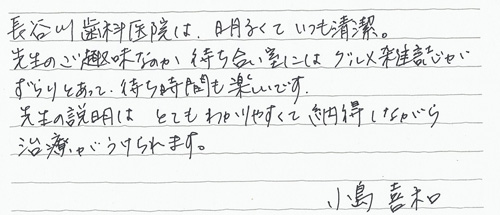 長谷川歯科医院は、明るくていつも清潔。
先生のご趣味なのか待ち合い室にはグルメ雑誌が
ずらりとあって、待ち時間も楽しいです。
先生の説明はとてもわかりやすくて納得しながら
治療がうけられます。
小島喜和